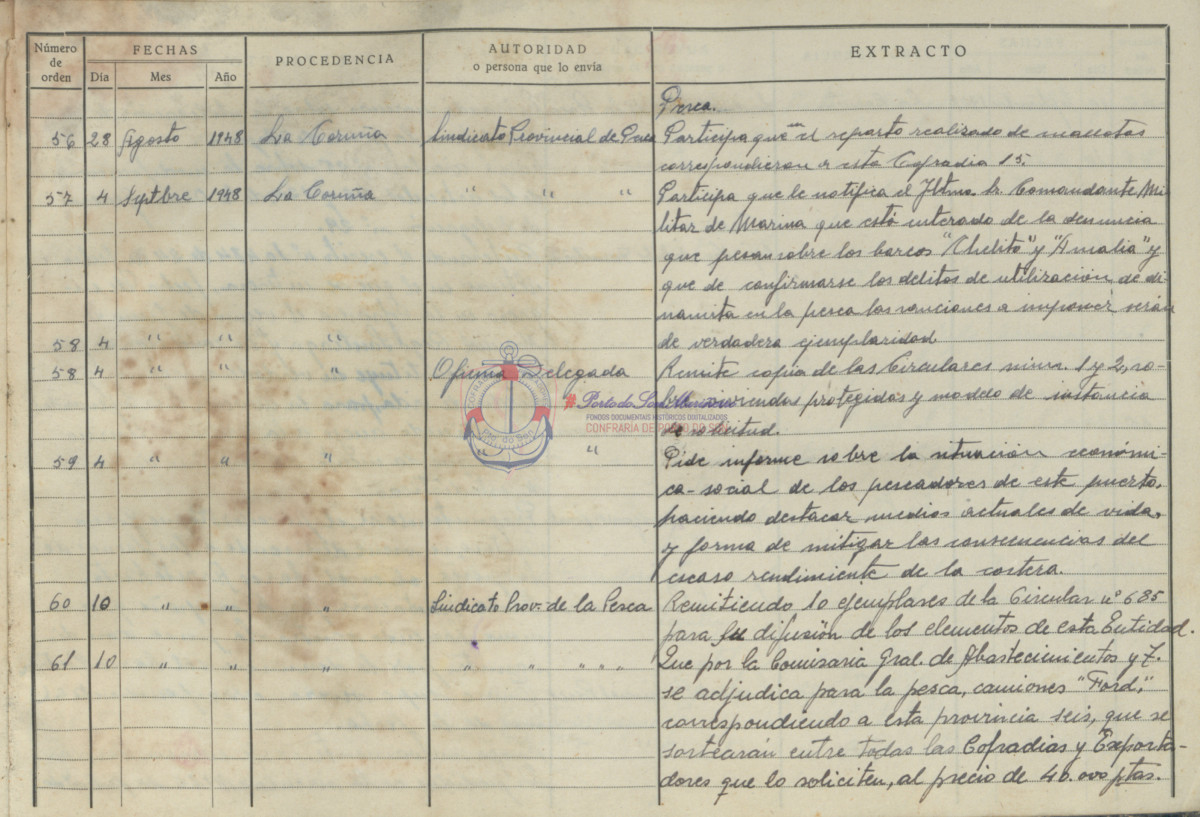 Número de orden FECHAS PROCEDENCIA AUTORIDAD o persona que lo envía EXTRACTO
Día Mes Año
Pesca.
56 28 Agosto 1948 La Coruña Sindicato Provincial de Pesca Participa que en el reparto realizado de mallotas
correspondieron a esta Cofradia 15.
57 4 Septbre 1948 La Coruña " " " Participa que le notifica el Iltmo. Sr. Comandante Mi-
litar de Marina que está interado de la denuncia
que pesan sobre los barcos "Chelito" y "Amalia" y
que de confirmarse los delitos de utilización de di-
namita en la pesca las sanciones a imponer serán
58 4 " " " de verdadera ejemplaridad
58 4 " " " Oficina Delegada Remite copia de las Circulares núm. 1 y 2, so-
bre viviendas protegidas y modelo de instancia
de solicitud.
59 4 " " " " " Pide informe sobre la situación económi-
ca-social de los pescadores de este puerto,
haciendo destacar medios actuales de vida,
y forma de mitigar las consecuencias del
escaso rendimiente de la costera.
60 10 " " " Sindicato Prov. de la Pesca Remitiendo 10 ejemplares de la Circular nº 685
para su difusión de los elementos de esta Entidad.
61 10 " " " " " " " " Que por la Comisaria Gral. de Abastecimientos y T.
se adjudica para la pesca, camiones "Ford",
correspondiendo a esta provincia seis, que se
sortearán entre todas las Cofradias y Exporta-
dores que lo soliciten, al precio de 40.000 ptas.
#PortodoSonMariñeiro
FONDOS DOCUMENTAIS HISTÓRICOS DIGITALIZADOS
CONFRARÍA DE PORTO DO SON